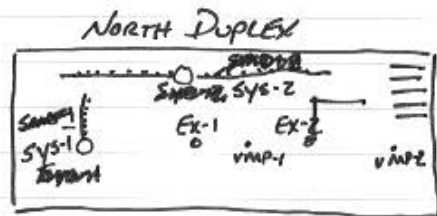 NORTH DUPLEX
SYS-2
SYS-1
EX-1
EX-2
VMP-1
VMP-2